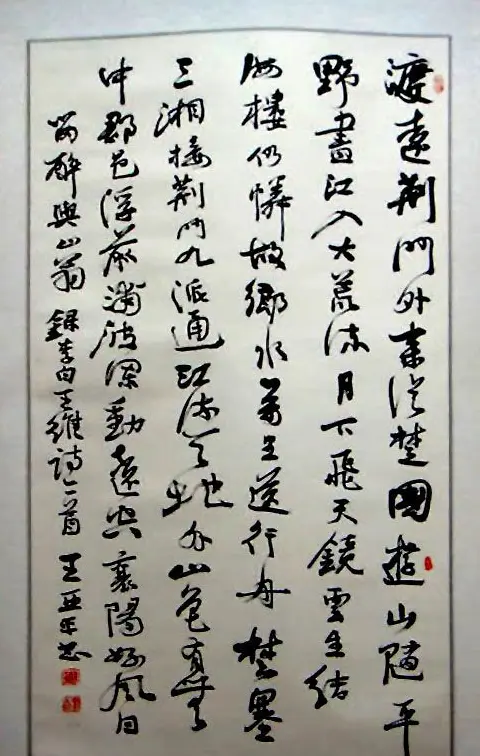 渡遠荊門外來從楚國遊山隨平
野盡江入大荒流月下飛天鏡雲生結
海樓仍憐故鄉水萬里送行舟楚塞
三湘接荊門九派通江流天地外山色有無
中郡邑浮前浦波瀾動遠空襄陽好風日
留醉與山翁 錄李白王維詩二首 王亞